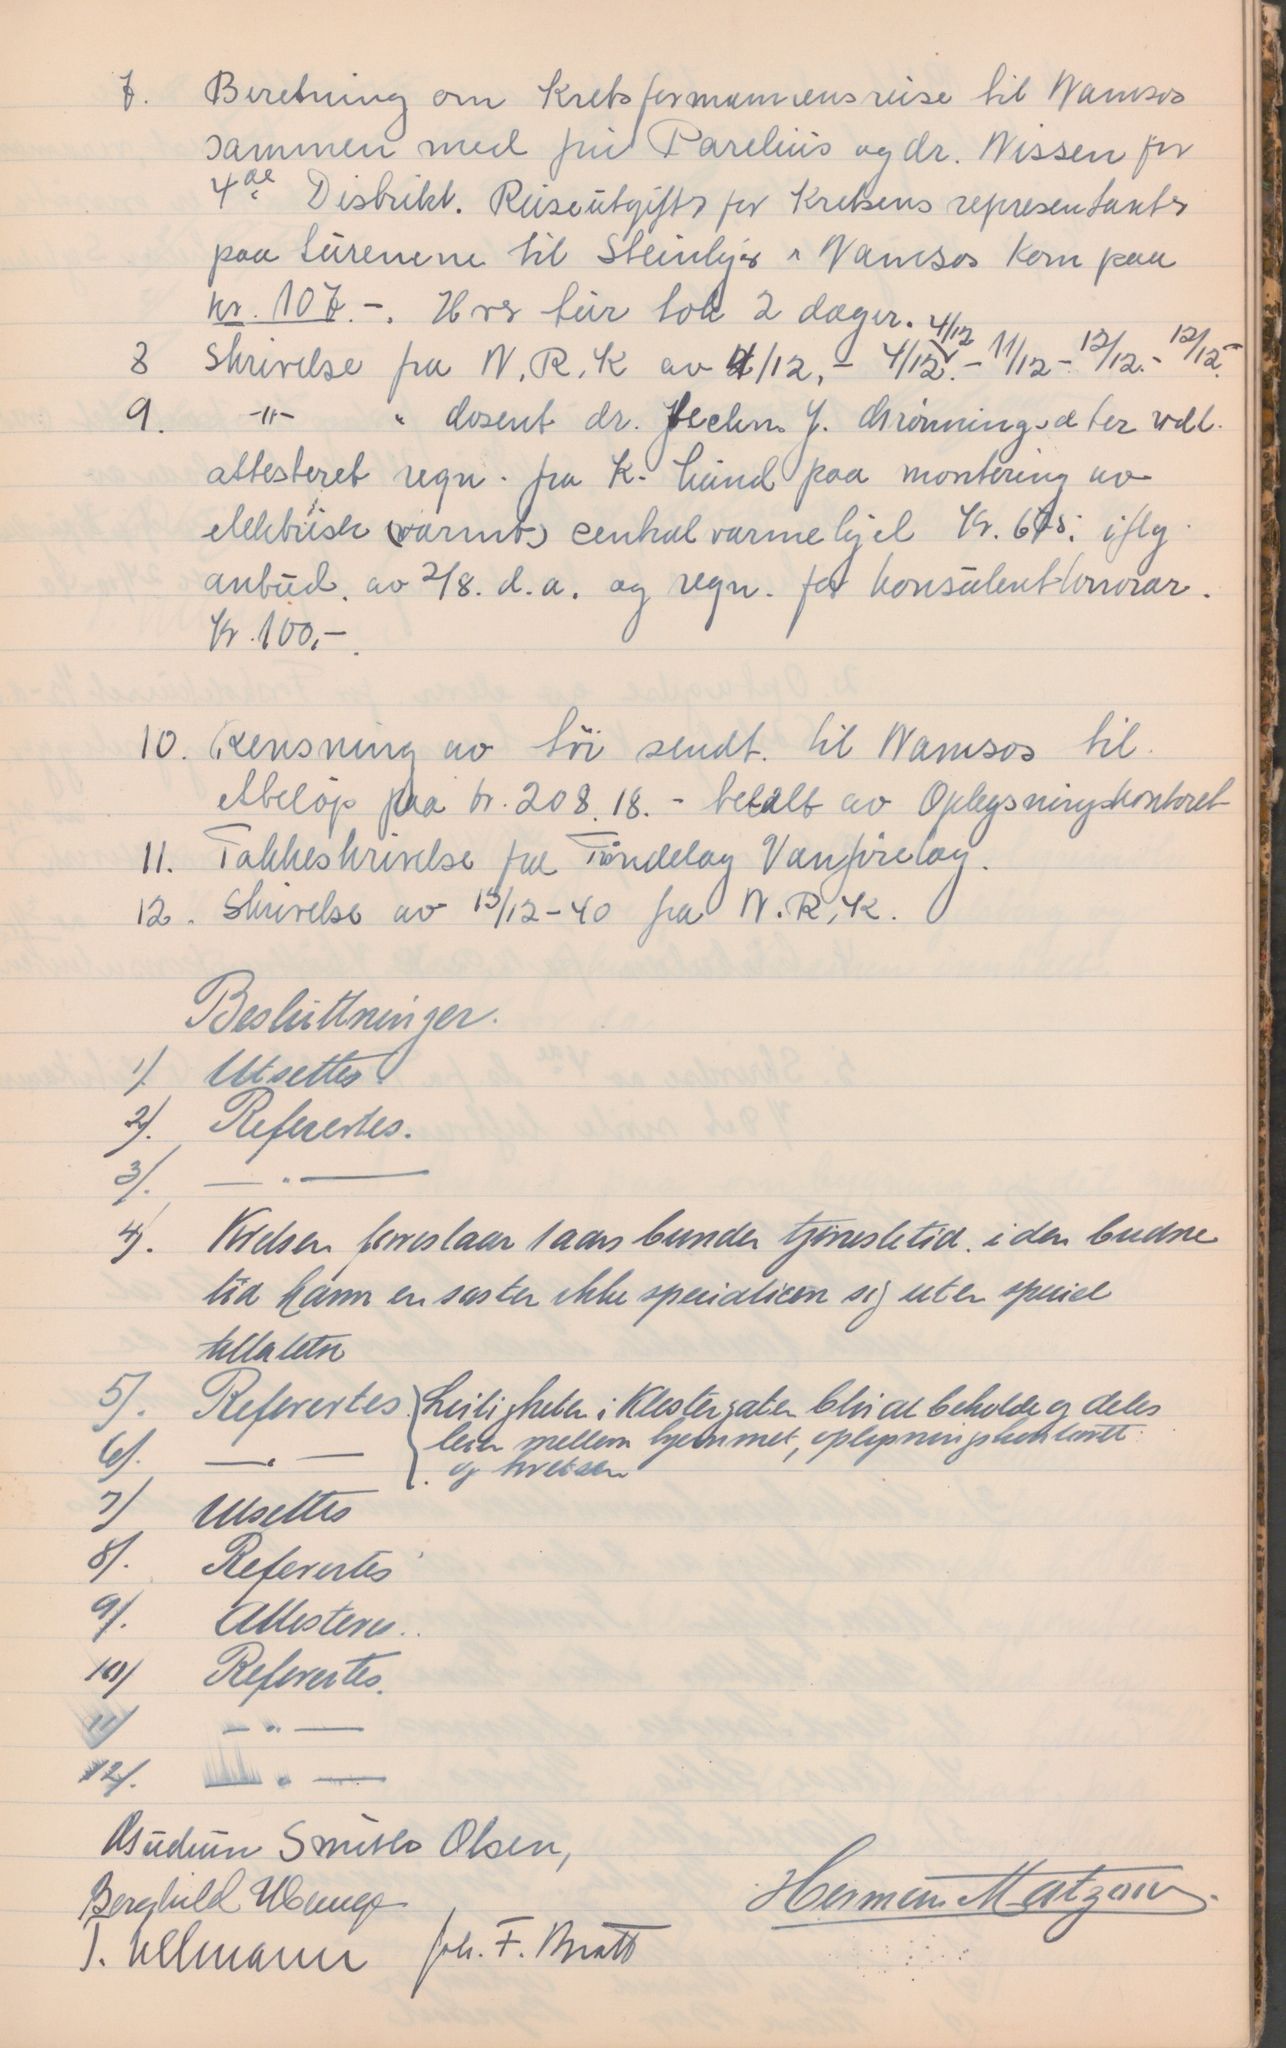 7. Beretning om Kretsformannens reise til Namsos
sammen med frü Parelius og dr. Nissen for
4de Distrikt. Reiseütgifter for Kretsens representanter
paa türenene til Steinkjer " Namsos kom paa
kr. 107.-. Hver tür tok 2 dager.
8 Skrivelse fra N.R.K av 4/12.- 4/12.- 4/12 11/12 - 12/12.- 12/12.-
9. -"- " dosent dr. techn. J. Grönningsæter vedl.
attesteret regn. fra K. Lund paa montering av
elektrisk (varmt) centralvarmekjel Kr. 675; iflg.
anbüd. av 2/8. d.a. og regn. for konsülenthonorar.
Kr. 100,-.
10. Rensning av töi sendt. til Namsos til.
et beløp paa kr. 208.18.- betalt av Oplysningskontoret
11. Takkeskrivelse fra Tröndelag Vanförelag.
12. Skrivelse av 13/12-40 fra N.R.K.
Beslüttninger.
1/. Utsettes
2/. Referertes.
3/. — " —
4/. Kretsen foreslaar 1 aars bunden tjenestetid. i den bundne
tid kann en søster ikke specialicere sig uten speciel
tillatelse
5/. Referertes. } Leiligheten i Klostergaten blir at beholde og deles
6/. — " — leien mellem hjemmet, oplysningskontoret
og kretsen
7/ Utsettes
8/. Referertes
9/. Attesteres.
10/ Referertes.
11/ — " —
12/. — " —
Smith Olsen,
Borghild
Herman Matzow.
T. Ullmann Joh. F. Bratt